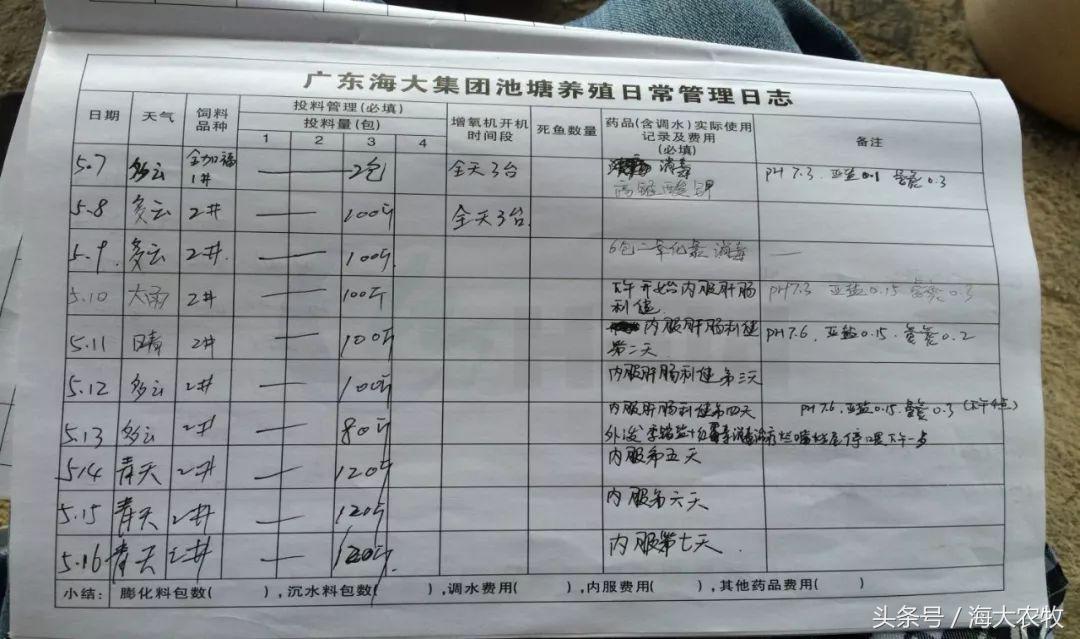 广东海大集团池塘养殖日常管理日志
日期 天气 饲料品种 投料管理(必填) 增氧机开机时间段 死鱼数量 药品(含调水)实际使用记录及费用(必填) 备注
投料量(包)
1 2 3 4
5.7 多云 全加福1# 2包 全天3台 消毒 PH 7.3 亚盐0.1 氨氮0.3
5.8 多云 2# 100斤 全天3台
5.9. 多云 2# 100斤. 6包二氧化氯消毒 —
5.10 大雨 2# 100斤 下午开始内服肝肠利健 PH7.3 亚盐0.15 氨氮0.3
5.11 晴 2# 100斤 内服肝肠利健第二天 PH7.6. 亚盐0.15. 氨氮0.2
5.12 多云 2# 100斤 内服肝肠利健第三天
5.13 多云 2# 80斤 内服肝肠利健第四天 PH 7.6. 亚盐0.15. 氨氮0.3 (下午4点)
外泼季铵盐+
514 青天 2# 120斤 内服第五天
5.15 青天 2# 120斤 内服第六天
5.16 青天 2# 120斤. 内服第七天.
小结: 膨化料包数( ),沉水料包数( ),调水费用( ),内服费用( ),其他药品费用( )
头条号 / 海大农牧